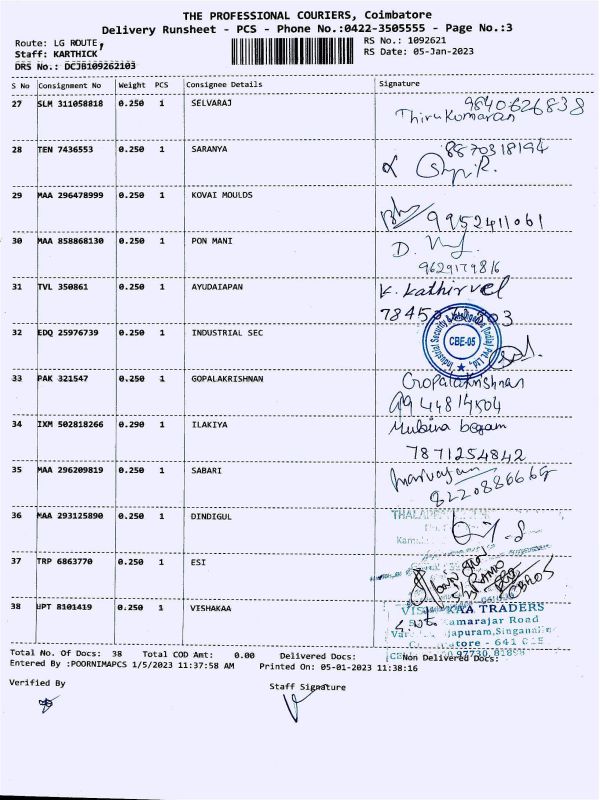 THE PROFESSIONAL COURIERS, Coimbatore
Delivery Runsheet - PCS - Phone No.:0422-3505555 - Page No.:3
Route: LG ROUTE,
RS No.: 1092621
Staff: KARTHICK
RS Date: 05-Jan-2023
DRS No.: DCJB109262103
S No Consignment No Weight PCS Consignee Details Signature
27 SLM 311058818 0.250 1 SELVARAJ 9840626838
Thirukumaran
28 TEN 7436553 0.250 1 SARANYA 8870318194
29 MAA 296478999 0.250 1 KOVAI MOULDS
9952411061
30 MAA 858868130 0.250 1 PON MANI D.
9629179816
31 TVL 350861 0.250 1 AYUDAIAPAN K. Kathirvel
78450 03
32 EDQ 25976739 0.250 1 INDUSTRIAL SEC
Industrial Security & Intelligence India Pvt. Ltd.,
CBE-05
33 PAK 321547 0.250 1 GOPALAKRISHNAN Gopalakrishnan
9944814504
34 IXM 502818266 0.290 1 ILAKIYA Mubina begam
7871254842
35 MAA 296209819 0.250 1 SABARI
8220886669
36 MAA 293125890 0.250 1 DINDIGUL
37 TRP 6863770 0.250 1 ESI
38 UPT 8101419 0.250 1 VISHAKAA
TRADERS
amarajar Road
Total No. Of Docs: 38 Total COD Amt: 0.00 Delivered Docs: Non Delivered Docs:
Entered By :POORNIMAPCS 1/5/2023 11:37:58 AM Printed On: 05-01-2023 11:38:16
Verified By
Staff Signature